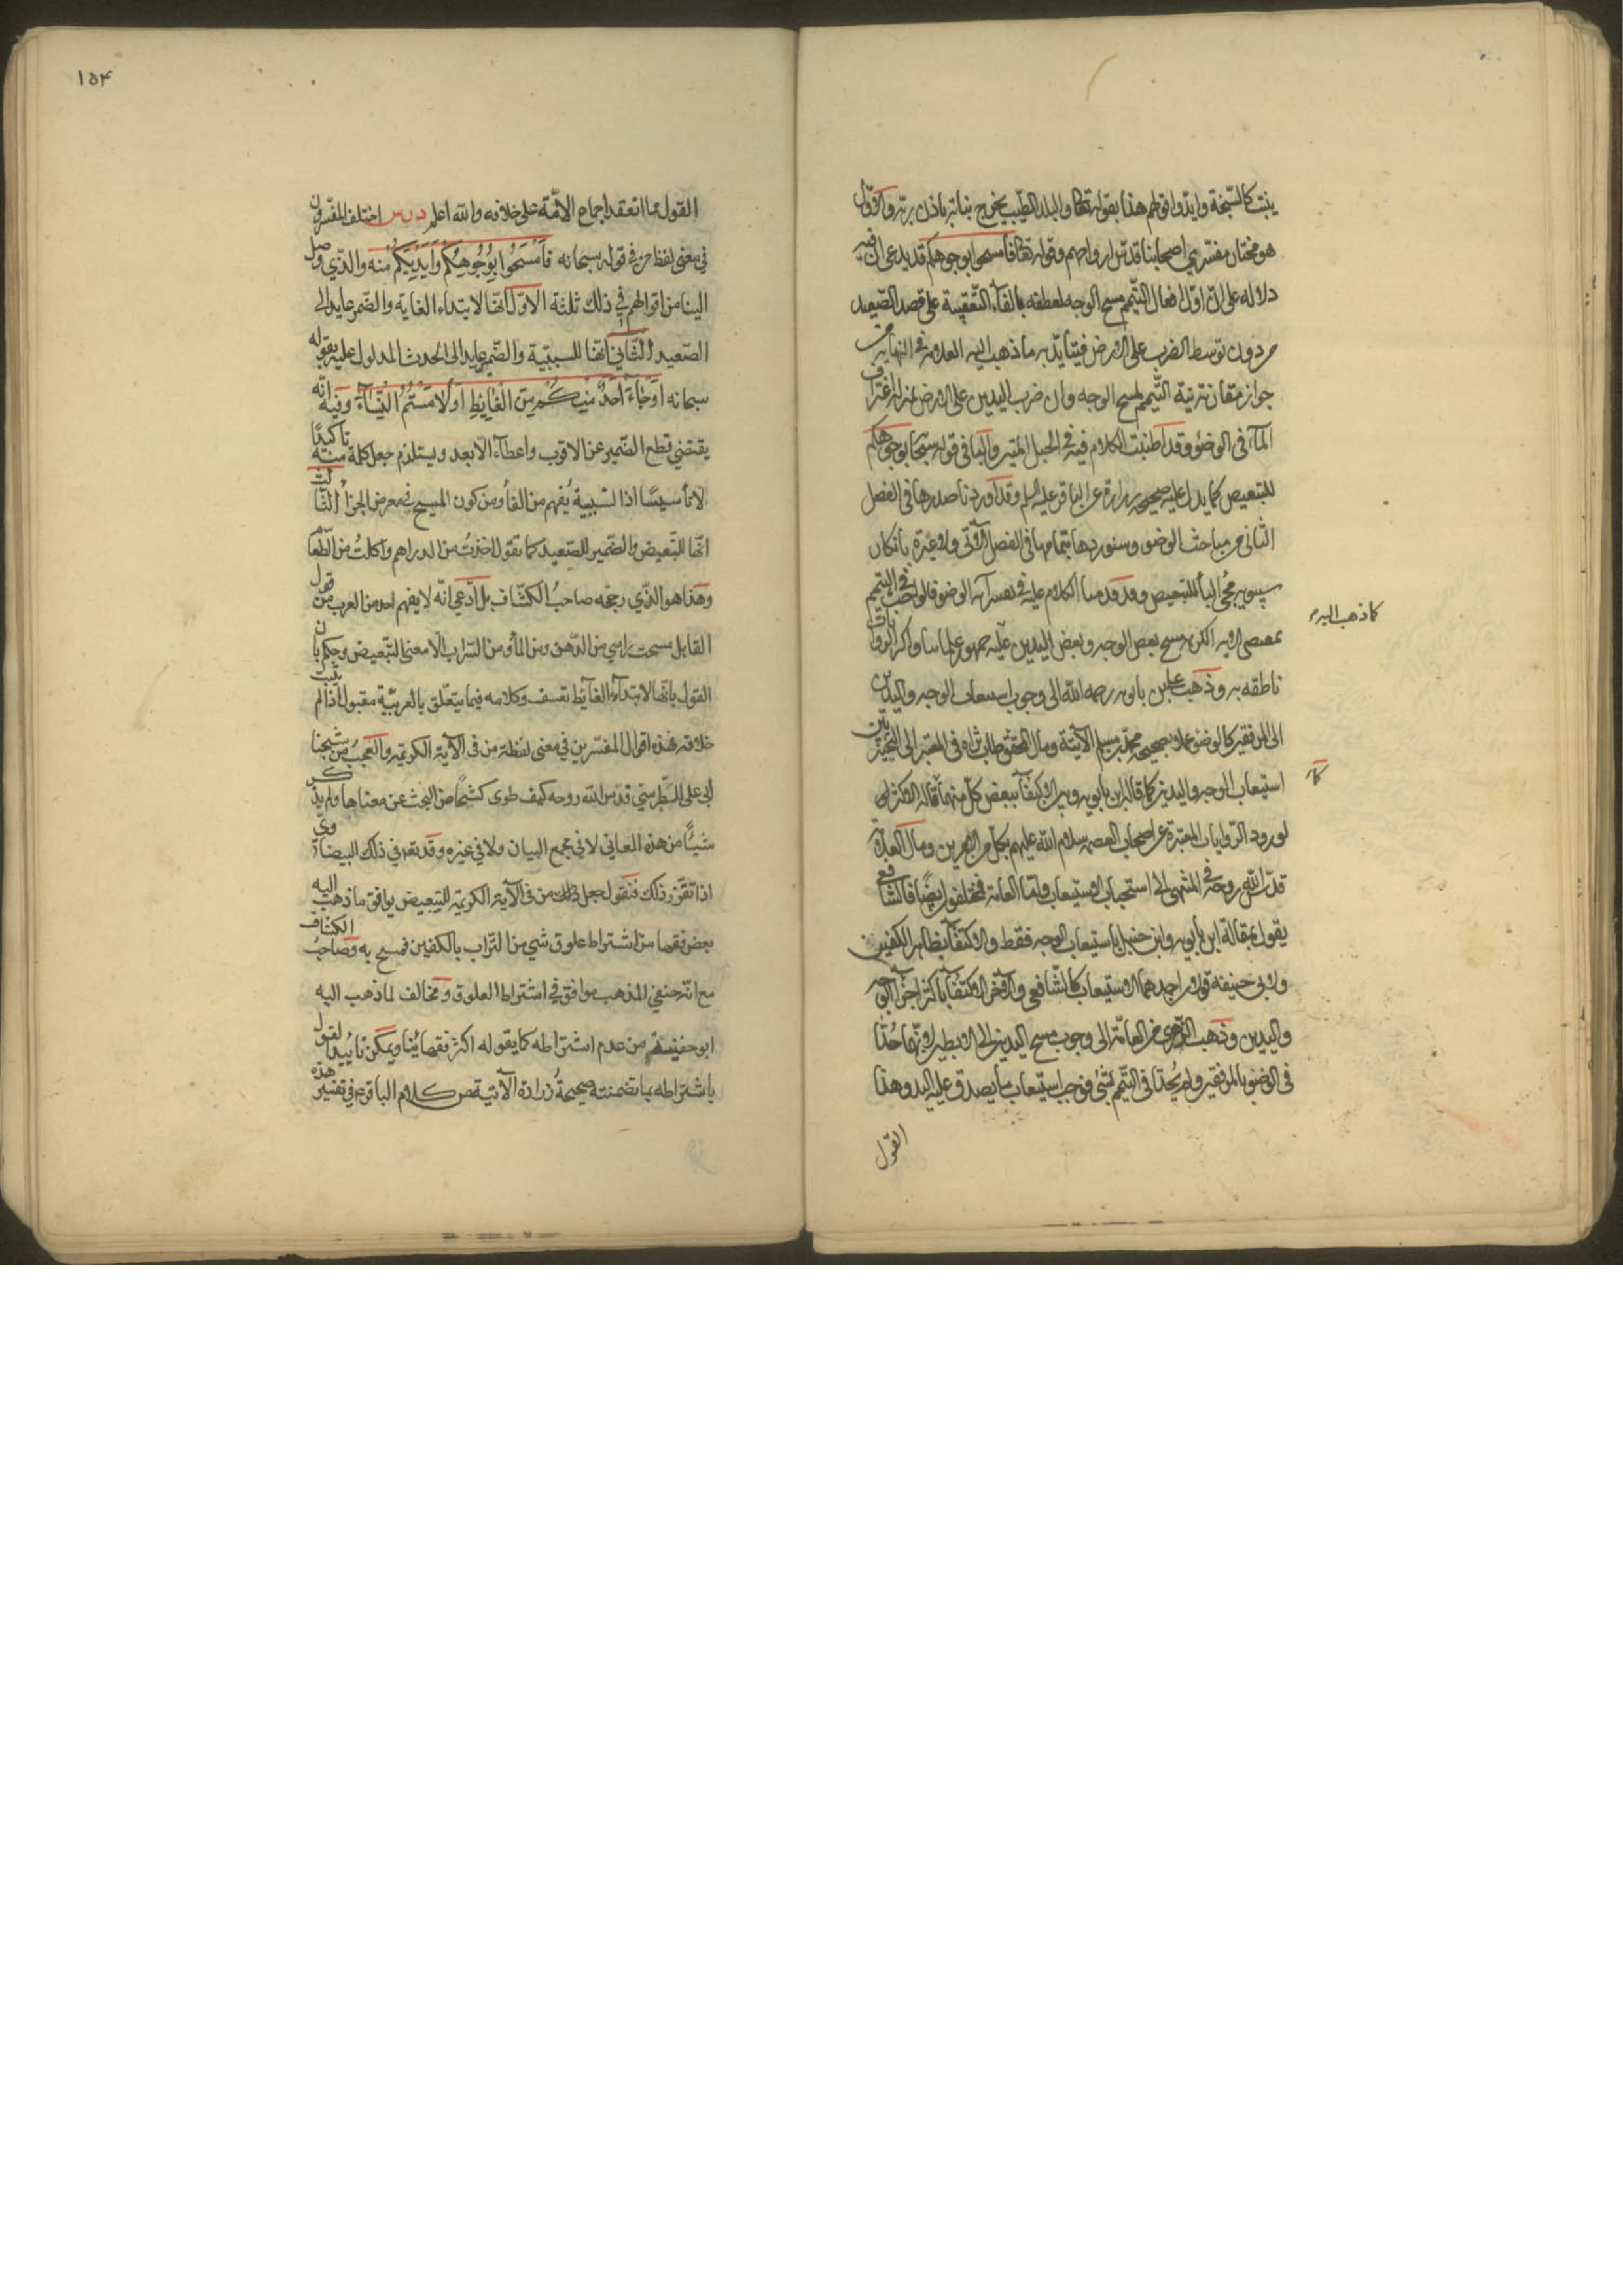 ينبت كالسبخة وايدوا قولهم هذا بقوله تعالى والبلد الطيب يخرج نباته باذن ربه والاول
هو مختار مفسري اصحابنا قدس ارواحهم وقوله تعالى فامسحوا بوجوهكم قد يدعى ان فيه
دلالة على ان اول افعال التيمم مسح الوجه لعطفه بالفاء التعقيبية على قصد الصعيد
من دون توسط الضرب على الارض فيتأيد به ما ذهب اليه العلامة في النهاية من
جواز مقارنة نية التيمم لمسح الوجه وان ضرب اليدين على الارض بمنزلة اغتراف
الماء في الوضوء وقد اطنبت الكلام فيه في الحبل المتين والباء في قوله سبحانه بوجوهكم
للتبعيض كما يدل عليه صحيحة زرارة عن الباقر عليه السلم وقد اوردنا صدرها في الفصل
الثاني من مباحث الوضوء وسنوردها بتمامها في الفصل الآتي ولا عبرة بانكار
سيبويه مجئ الباء للتبعيض وقد قدمنا الكلام عليه في تفسير آية الوضوء فالواجب في التيمم
كما ذهب اليه
بمقتضى الآية الكريمة مسح بعض الوجه وبعض اليدين عليه جمهور علمائنا واكثر الروايات
ناطقة به وذهب علي بن بابويه رحمه الله الى وجوب استيعاب الوجه واليدين
الى المرفقين كالوضوء عملا بصحيحة محمد بن مسلم الآتية ومال المحقق طاب ثراه في المعتبر الى التخيير بين
استيعاب الوجه واليدين كما قاله ابن بابويه وبين الاكتفاء ببعض كل منهما كما قاله الاكثر
لورود الروايات المعتبرة عن اصحاب العصمة سلام الله عليهم بكل من الامرين ومال العلامة
قدس الله روحه في المنتهى الى استحباب الاستيعاب واما العامة فمختلفون ايضا فالشافعي
يقول بمقالة ابن بابويه وابن حنبل باستيعاب الوجه فقط والاكتفاء بظاهر الكفين
ولابي حنيفة قولان احدهما الاستيعاب كالشافعي والآخر الاكتفاء باكثر اجزاء الوجه
واليدين وذهب الزهري من العامة الى وجوب مسح اليدين الى الابطين لانهما حدتا
في الوضوء بالمرفقين ولم يحدا في التيمم بشئ فوجب استيعاب ما يصدق عليه اليد وهذا
القول
١٥٤
القول مما انعقد اجماع الامة على خلافه والله اعلم درس اختلف المفسرون
في معنى لفظ من في قوله سبحانه فَامْسَحُوا بِوُجُوهِكُمْ وَأَيْدِيكُمْ مِنْهُ والذي وصل
الينا من اقوالهم في ذلك ثلثة الاول انها لابتداء الغاية والضمير عايد الى
الصعيد الثاني انها للسببية والضمير عايد الى الحدث المدلول عليه بقوله
سبحانه أَوْ جَاءَ أَحَدٌ مِنْكُمْ مِنَ الْغَايِطِ أَوْ لَامَسْتُمُ النِّسَاءَ وفيه انه
يقتضي قطع الضمير عن الاقرب واعطاءه الابعد ويستلزم جعل كلمة منه تاكيدا
لا تأسيسا اذ السببية يُفهم من الفاء ومن كون المسح في معرض الجزاء الثالث
انها للتبعيض والضمير للصعيد كما تقول اخذتُ من الدراهم واكلتُ من الطعام
وهذا هو الذي رجحه صاحبُ الكشاف بل ادعى انه لا يفهم احد من العرب من قول
القايل مسحت براسي من الدهن ومن الماء ومن التراب الا معنى التبعيض وحكم بان
القول بانها لابتداء الغاية تعسف وكلامه فيما يتعلق بالعربية مقبول اذا لم يثبت
خلافه فهذه اقوال المفسرين في معنى لفظة من في الآية الكريمة والعجبُ من شيخنا
ابي علي الطبرسي قدس الله روحه كيف طوى كشحا عن البحث عن معناها ولم يذكر
شيئًا من هذه المعاني لا في مجمع البيان ولا في غيره وقد تبعه في ذلك البيضاوي
اذا تقرر ذلك فنقول جعل من في الآية الكريمة للتبعيض يوافق ما ذهب اليه
بعض فقهائنا من اشتراط علوق شي من التراب بالكفين فمسح به وصاحبُ الكشاف
مع انه حنفي المذهب موافق في اشتراط العلوق ومخالف لما ذهب اليه
ابو حنيفة من عدم اشتراطه كما يقوله اكثر فقهائنا ويمكن تاييد القول
باشتراطه بما تضمنته صحيحة زرارة الآتية من كلام الباقر في تفسير هذه